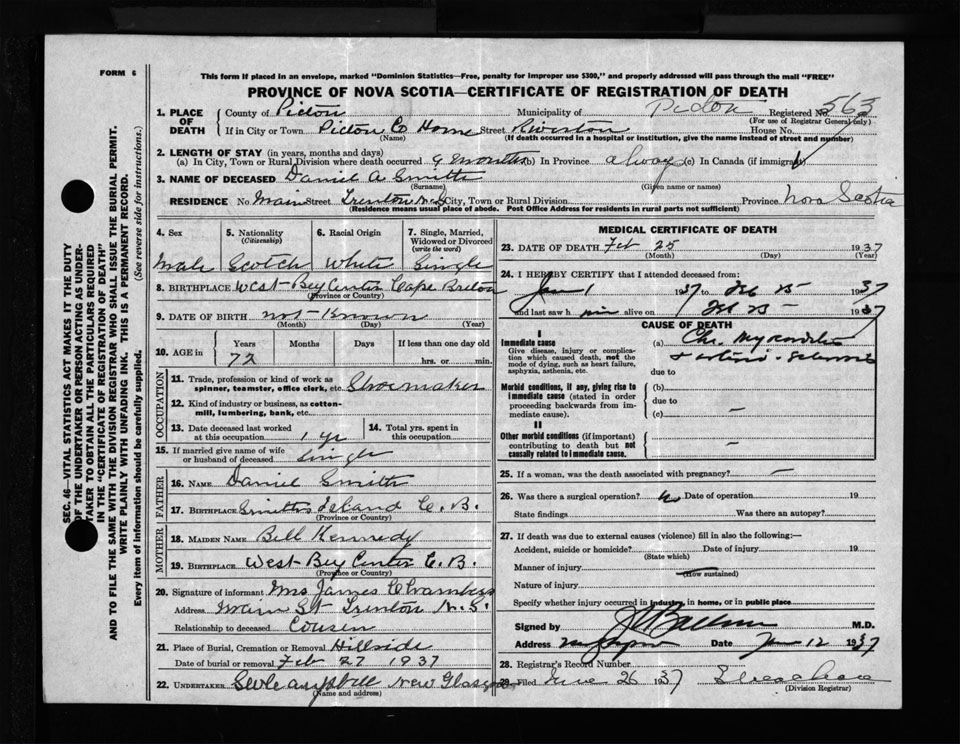 FORM 6
This form if placed in an envelope, marked "Dominion Statistics—Free, penalty for improper use $300," and properly addressed will pass through the mail "FREE"
PROVINCE OF NOVA SCOTIA—CERTIFICATE OF REGISTRATION OF DEATH
1. PLACE OF DEATH County of Pictou Municipality of Pictou Registered No. 563
(For use of Registrar General only)
If in City or Town Pictou Co Home Street Riverton House No.
(Name) (If death occurred in a hospital or institution, give the name instead of street and number)
2. LENGTH OF STAY (in years, months and days)
(a) In City, Town or Rural Division where death occurred 9 months (b) In Province always (c) In Canada (if immigrant)
3. NAME OF DECEASED Daniel A. Smith
(Surname) (Given name or names)
RESIDENCE No. Main Street Trenton N.S. City, Town or Rural Division Province Nova Scotia
(Residence means usual place of abode. Post Office Address for residents in rural parts not sufficient)
4. Sex 5. Nationality (Citizenship) 6. Racial Origin 7. Single, Married, Widowed or Divorced (write the word)
Male Scotch White Single
8. BIRTHPLACE West Bey Center Cape Breton
(Province or Country)
9. DATE OF BIRTH not Known
(Month) (Day) (Year)
10. AGE in Years Months Days If less than one day old
72 hrs. or min.
OCCUPATION
11. Trade, profession or kind of work as spinner, teamster, office clerk, etc. Shoemaker
12. Kind of industry or business, as cotton-mill, lumbering, bank, etc.
13. Date deceased last worked at this occupation 1 yr 14. Total yrs. spent in this occupation
15. If married give name of wife or husband of deceased Single
FATHER
16. NAME Daniel Smith
17. BIRTHPLACE Smiths Island C.B.
(Province or Country)
MOTHER
18. MAIDEN NAME Bell Kennedy
19. BIRTHPLACE West Bey Center C.B.
(Province or Country)
20. Signature of informant Mrs James Chambers
Address Main St Trenton N.S.
Relationship to deceased Cousin
21. Place of Burial, Cremation or Removal Hillside
Date of burial or removal Feb 27 1937
22. UNDERTAKER New Glasgow
(Name and address)
MEDICAL CERTIFICATE OF DEATH
23. DATE OF DEATH Feb 25 1937
(Month) (Day) (Year)
24. I HEREBY CERTIFY that I attended deceased from:
Jan 1 1937 to Feb 25 1937
and last saw him alive on Feb 25 1937
CAUSE OF DEATH
I
Immediate cause
Give disease, injury or complication which caused death, not the mode of dying, such as heart failure, asphyxia, asthenia, etc.
(a) Chr. Myocarditis
due to
Morbid conditions, if any, giving rise to immediate cause (stated in order proceeding backwards from immediate cause).
(b)
due to
(c) —
II
Other morbid conditions (if important) contributing to death but not causally related to immediate cause.
—
25. If a woman, was the death associated with pregnancy? —
26. Was there a surgical operation? Date of operation 19
State findings Was there an autopsy?
27. If death was due to external causes (violence) fill in also the following:—
Accident, suicide or homicide? Date of injury 19
(State which)
Manner of injury
(How sustained)
Nature of injury
Specify whether injury occurred in industry, in home, or in public place
Signed by M.D.
Address Date 12 1937
28. Registrar's Record Number
29. Filed June 26 1937
(Division Registrar)
SEC. 46—VITAL STATISTICS ACT MAKES IT THE DUTY
OF THE UNDERTAKER OR PERSON ACTING AS UNDER-
TAKER TO OBTAIN ALL THE PARTICULARS REQUIRED
IN THE "CERTIFICATE OF REGISTRATION OF DEATH"
AND TO FILE THE SAME WITH THE DIVISION REGISTRAR WHO SHALL ISSUE THE BURIAL PERMIT.
WRITE PLAINLY WITH UNFADING INK. THIS IS A PERMANENT RECORD.
Every item of information should be carefully supplied. (See reverse side for instructions.)